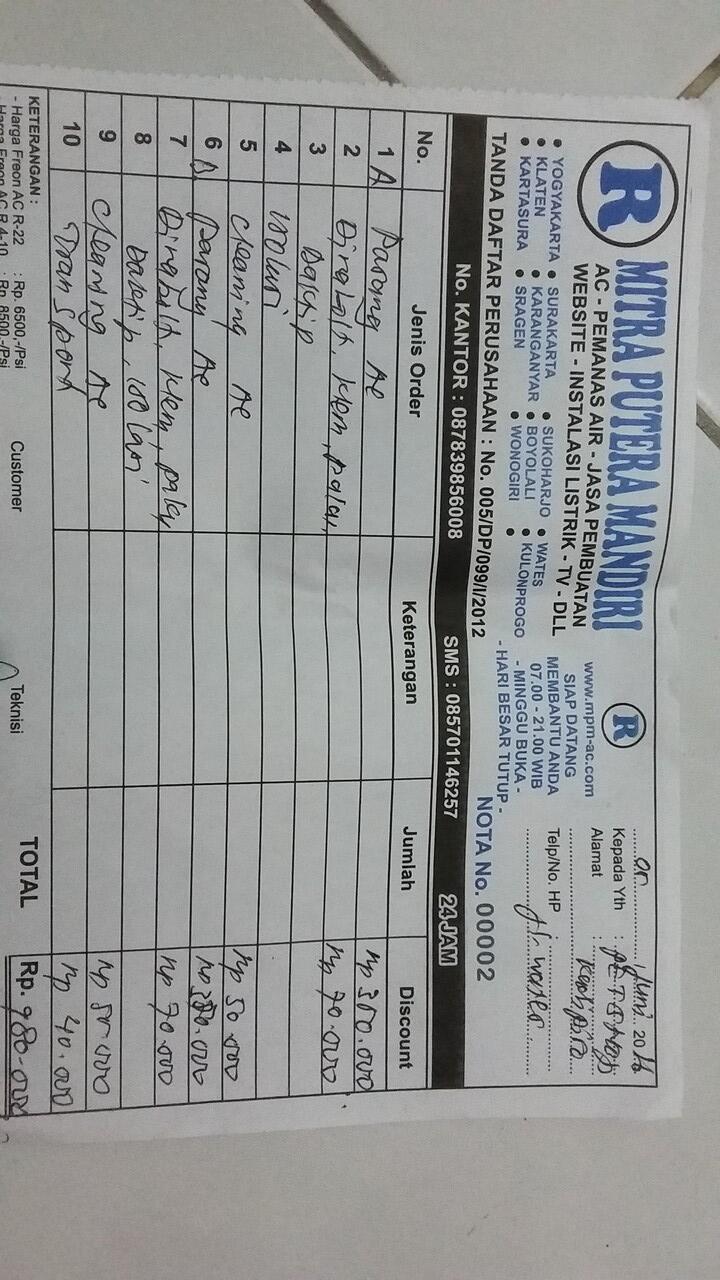 R MITRA PUTERA MANDIRI
AC - PEMANAS AIR - JASA PEMBUATAN
WEBSITE - INSTALASI LISTRIK - TV - DLL
• YOGYAKARTA • SURAKARTA • SUKOHARJO • WATES
• KLATEN • KARANGANYAR • BOYOLALI • KULONPROGO
• KARTASURA • SRAGEN • WONOGIRI •
TANDA DAFTAR PERUSAHAAN : No. 005/DP/099/I/2012
R
www.mpm-ac.com
SIAP DATANG
MEMBANTU ANDA
07.00 - 21.00 WIB
- MINGGU BUKA -
- HARI BESAR TUTUP -
Juni 2016
Kepada Yth :
Alamat :
Telp/No. HP
NOTA No. 00002
No. KANTOR : 087839856008 SMS : 085701146257 24JAM
No. Jenis Order Keterangan Jumlah Discount
1 A Pasang AC Rp 350.000
2 klem, Rp 70.000
3
4 isolasi
5 cleaning AC Rp 50.000
6 Pasang AC
7 klem, Rp 70.000
8 isolasi
9 cleaning AC
10 Transport Rp 40.000
TOTAL Rp. 980.000
KETERANGAN :
- Harga Freon AC R-22 : Rp. 6500,-/Psi
- Harga Freon AC R 4-10 : Rp. 8500,-/Psi
Customer
Teknisi